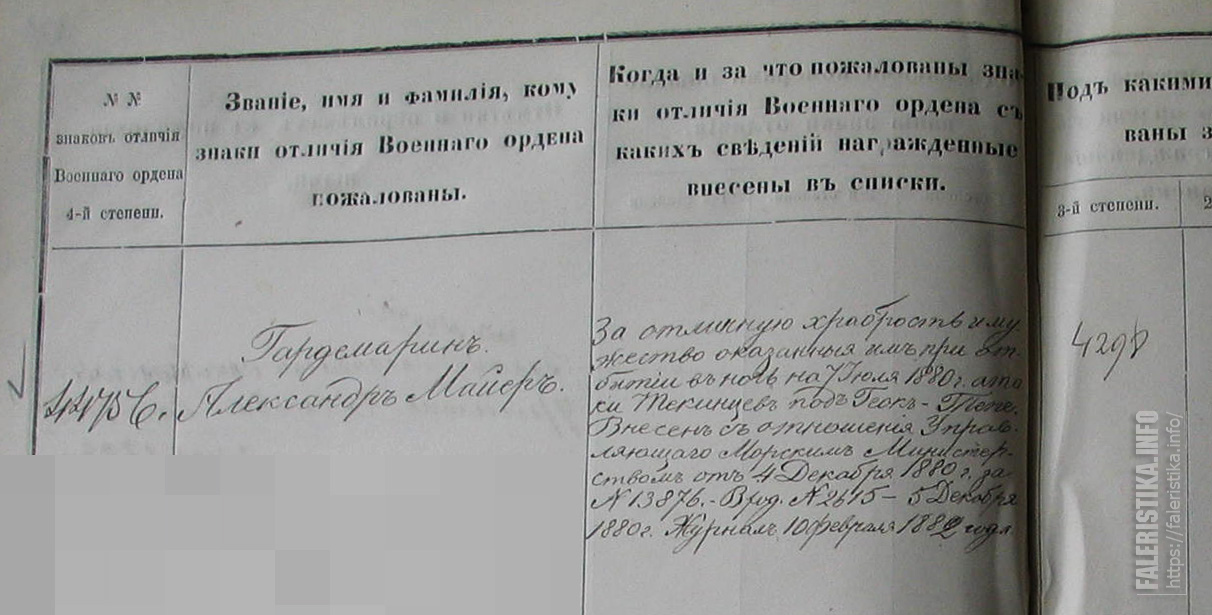 № №
знаковъ отличія
Военнаго ордена
4-й степени.
Званіе, имя и фамилія, кому
знаки отличія Военнаго ордена
пожалованы.
Когда и за что пожалованы зна-
ки отличія Военнаго ордена съ
какихъ свѣденій награжденные
внесены въ списки.
Подъ какими
ваны з
3-й степени.
2
Гардемаринъ.
Александръ Майеръ.
За отличную храбрость и му-
жество оказанныя имъ при от-
битіи въ ночь на 7 Іюля 1880 г. ата
ки Текинцевъ подъ Геокъ-Тепе.
Внесенъ съ отношенія Управ-
ляющаго Морскимъ Министер-
ствомъ отъ 4 Декабря 1880 г. за
№ 13876. - Вход. № 2615 - 5 Декабря
1880 г. Журналъ 10 февраля 1882 года.
FALERISTIKA.INFO
https://faleristika.info/